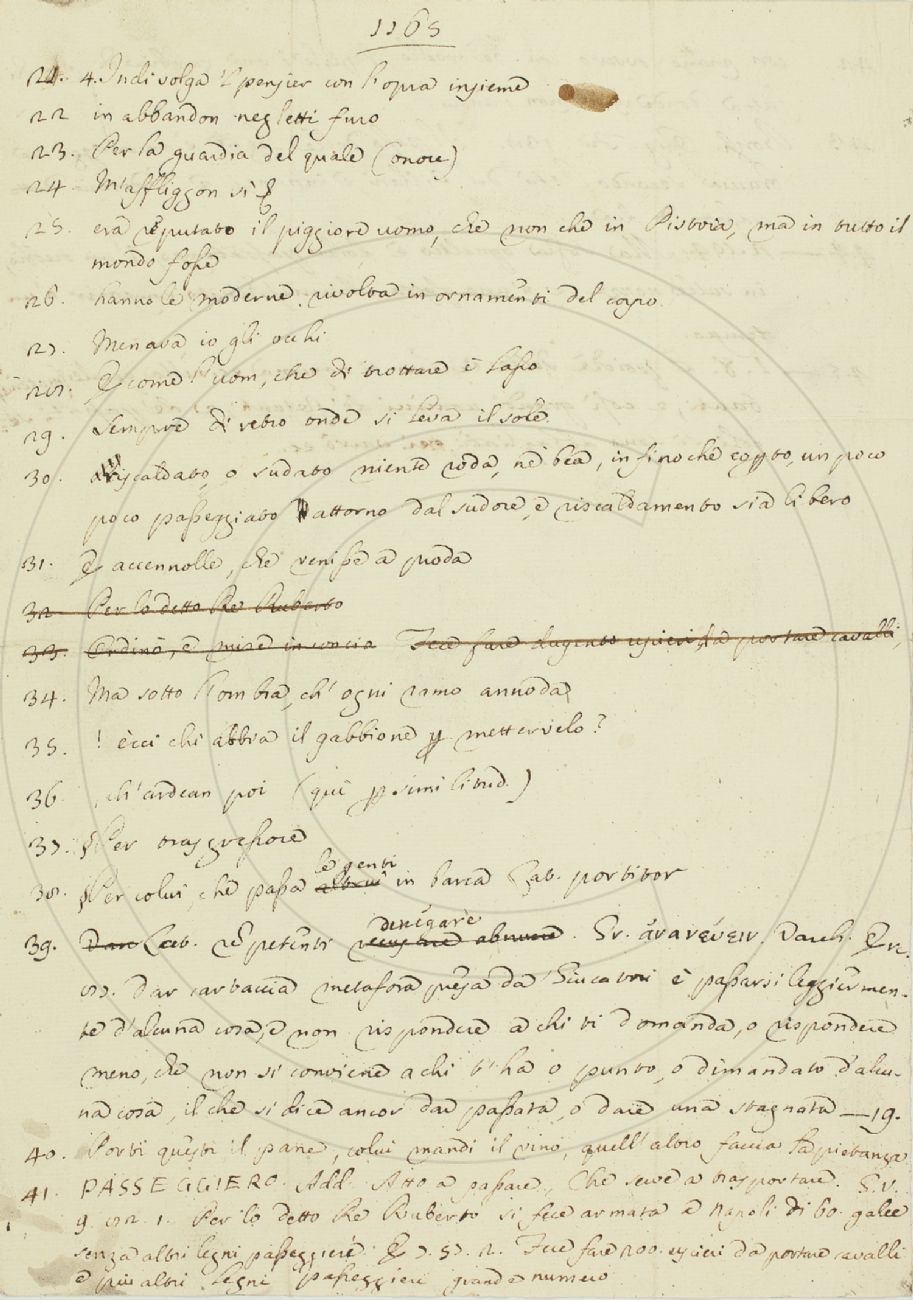 1163
21. 4. Indi volga 'l pensier con l'opra insieme
22 in abbandon negletti furo
23. Per la guardia del quale (onore)
24 M'affliggon sì
25. era reputato il piggiore uomo, che non che in Pistoia, ma in tutto il
mondo fosse
26. hanno le moderne rivolta in ornamenti del capo
27. Menava io gli occhi
28. E come l'uom, che di trottare è lasso
29. Sempre di retro onde si leva il sole
30. riscaldato, o sudato niente roda, nè bea, infinochè coperto, un poco
poco passeggiato attorno dal sudore, e riscaldamento sia libero
31. E accennolle, che venisse a proda
32 Per lo detto Re Ruberto
33. Ordinò, e mise in concio Fece fare dugento uscieri da portare cavalli,
34. Ma sotto l'ombra, ch'ogni ramo annoda
35. ! ècci chi abbia il gabbione p mettervelo?
36. , ch'ardean poi (quì p similitud.)
37. Per trasgressore
38. Per colui, che passa altrui le genti in barca Lat. portitor
39. Dare Lat. repetenti denegare. Gr. ἀνανεύειν. Varch. Er.
87. Dar cartaccia metafora presa da' Giucatori è passarsi leggiermen-
te d'alcuna cosa, e non rispondere a chi ti domanda, o rispondere
meno, che non si conviene a chi t'ha o punto, o dimandato d'alcu-
na cosa, il che si dice ancor dar passata, o dare una stagnata — 19.
40. Porti questi il pane, colui mandi il vino, quell'altro faccia la pietanza
41. PASSEGGIERO. Add. Atto a passare, Che serve a trasportare. G.V.
9. 82. 1. Per lo detto Re Ruberto si fece armata a Napoli di 60. galee
senza altri legni passeggieri. E 7. 57. 2. Fece fare 200. uscieri da portare cavalli
e più altri legni passeggieri grande numero